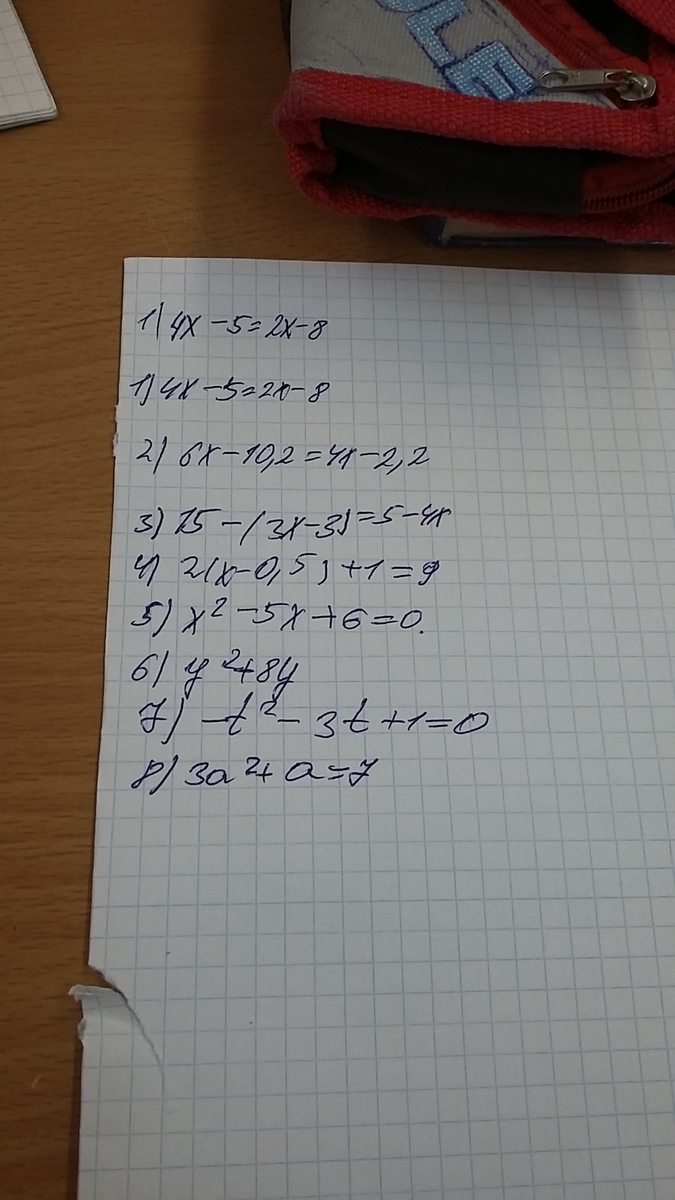 OLE
1) 4x-5=2x-8
1) 4x-5=2x-8
2) 6x-10,2=4x-2,2
3) 15-(3x-3)=5-4x
4) 2(x-0,5)+1=9
5) x²-5x+6=0.
6) y²+8y
7) -t²-3t+1=0
8) 3a²+a=7